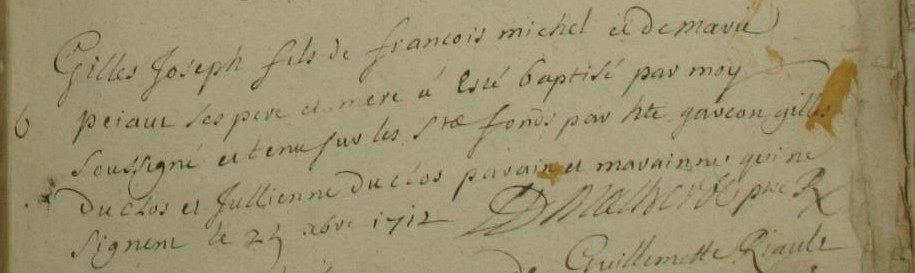 Gilles Joseph fils de francois michel et de marie
6 peiaut ses pere et mere a Esté baptisé par moy
soussigné et tenu sur les Stz fonds par hte garcon gilles
Duclos et Jullienne Duclos parain et marainne qui ne
signent le 25 xbre 1712 D Malherbe ptre R
Guillemette Riault